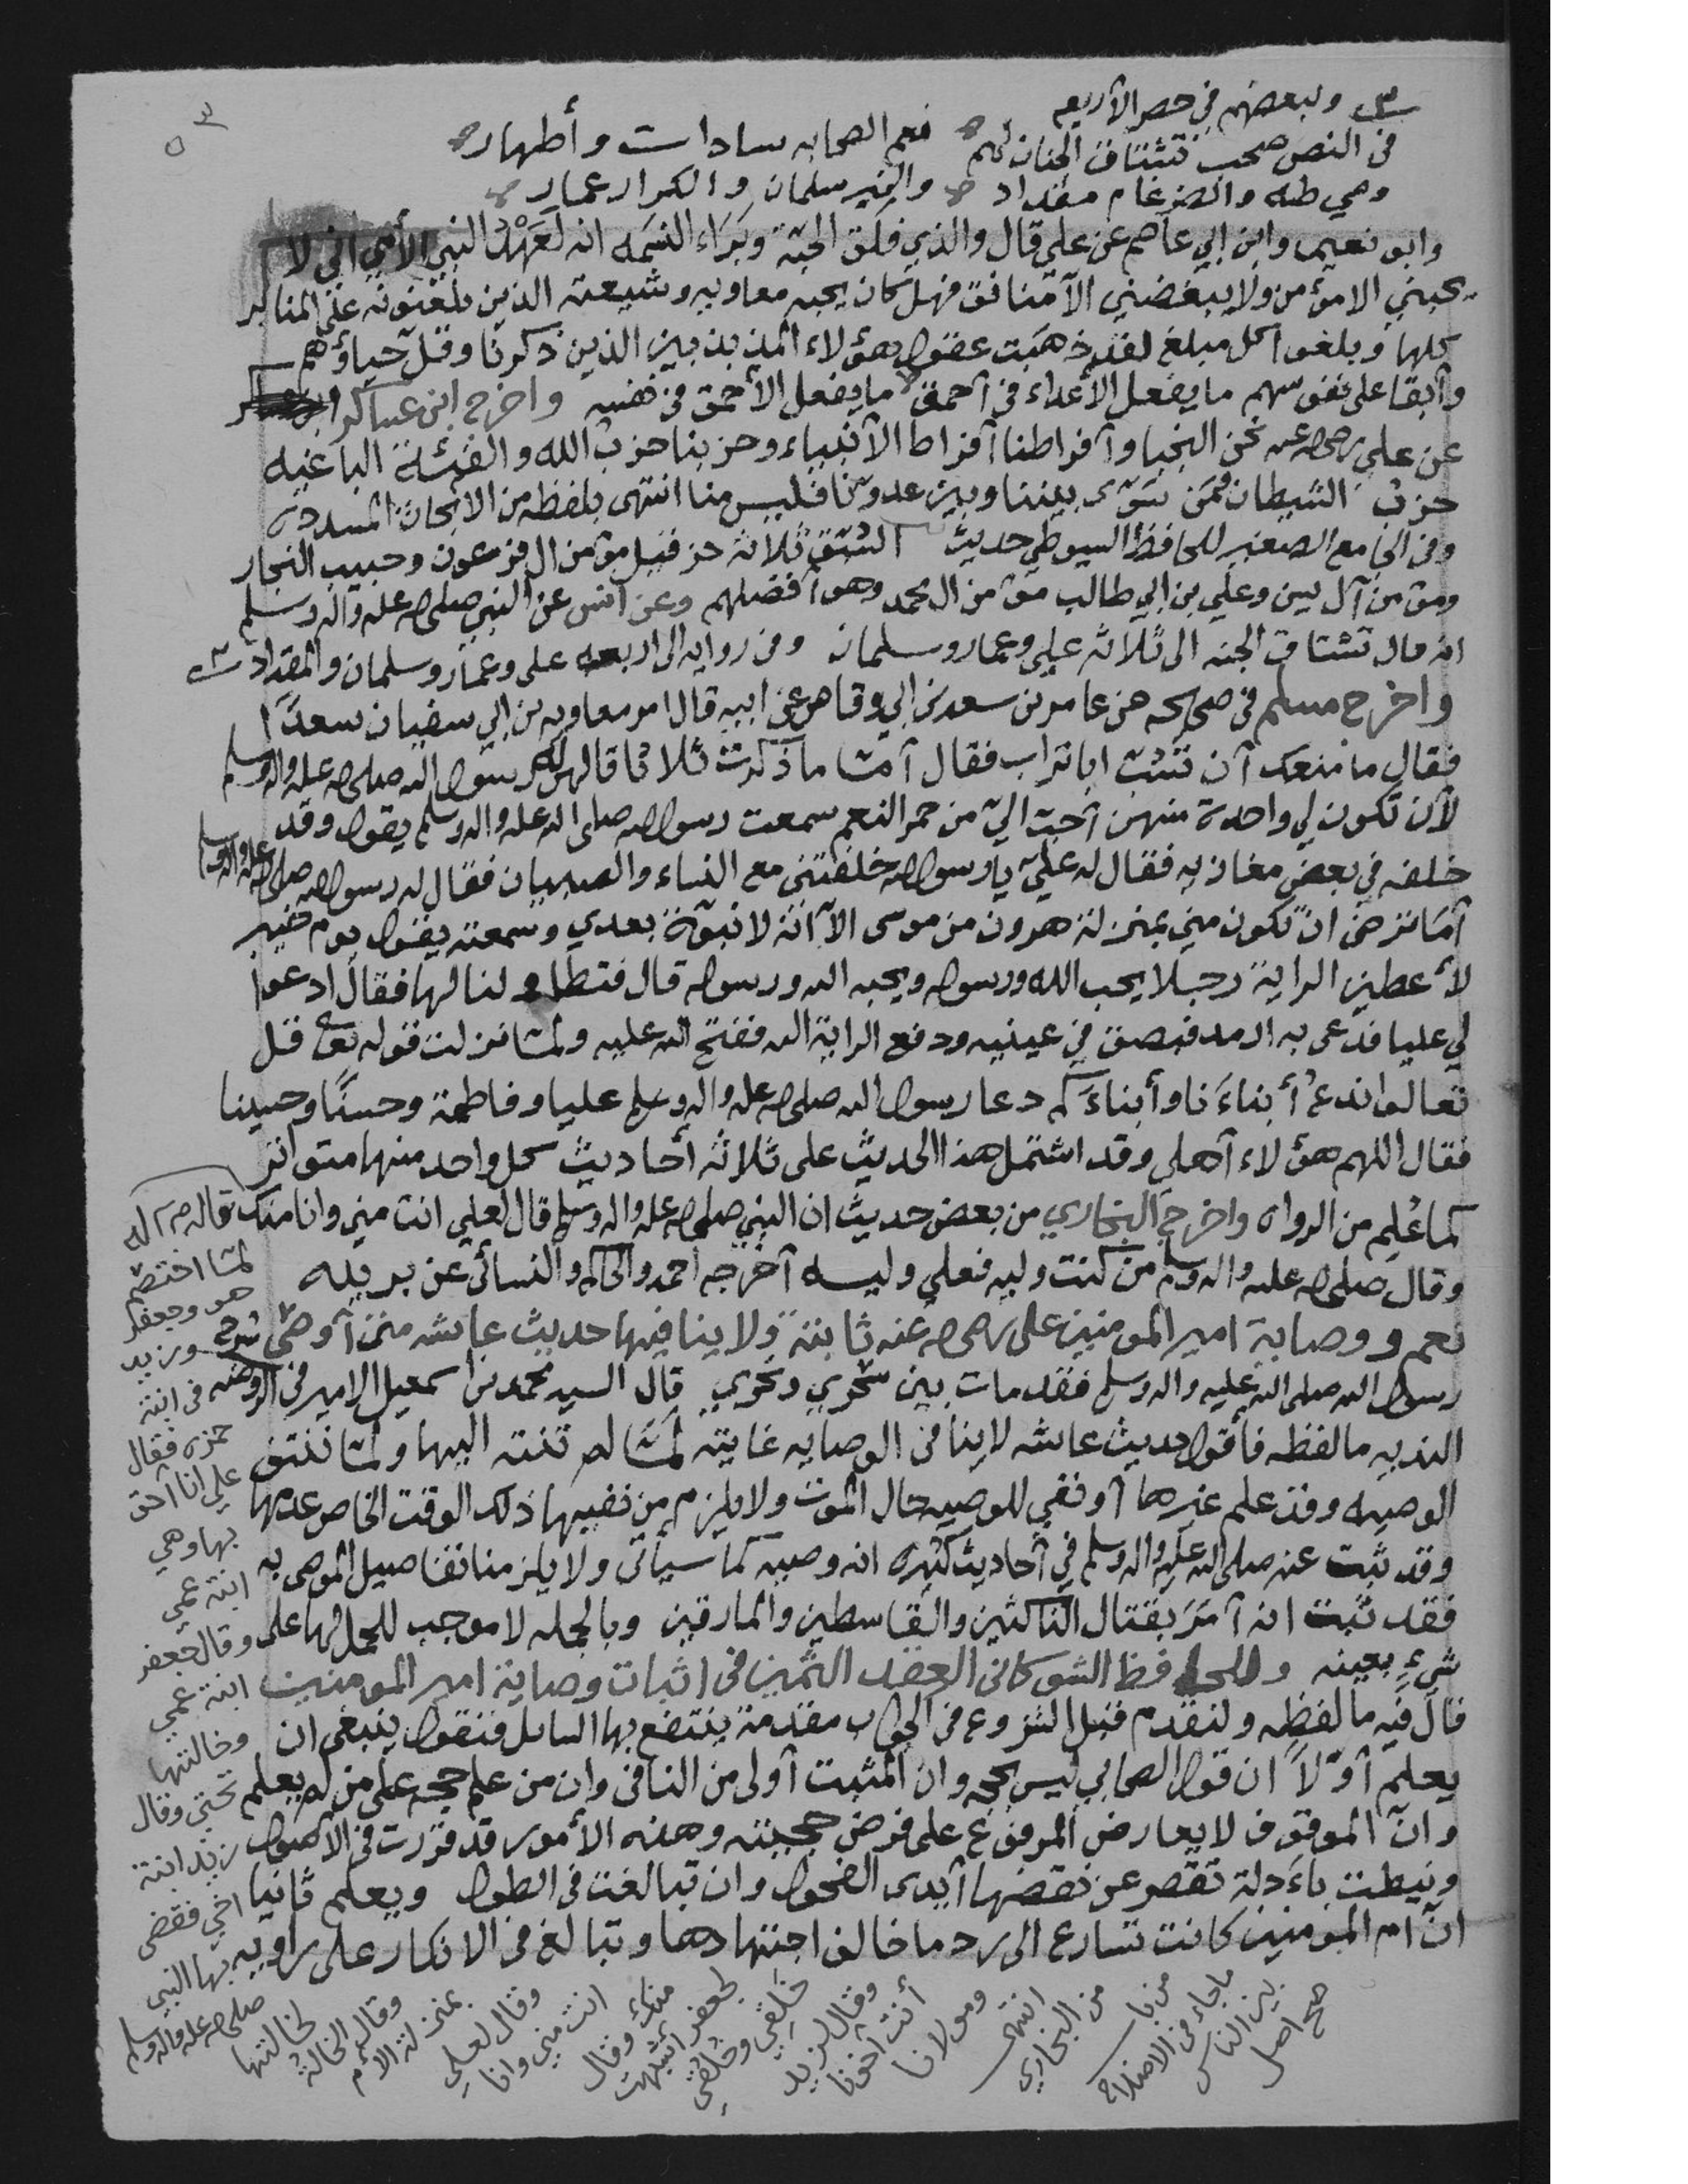 س ولبعضهم في حصر الأربعه
في النص صحب تشتاق الجنان لهم نعم الصحابه سادات وأطهار
وهي طه والضرغام مقداد والخير سلمان والكرار عمار
وابو نعيم وابن ابي عاصم عن علي قال والذي فلق الحبّة وبَرَاء النسَمه انه لعَهْدُ النبي الأمي اني لا
يحبني الا مؤمن ولا يبغضني الآ منافق فهل كان يحبه معاويه وشيعته الذين يلعنونه على المنابر
كلها وبلغوا كل مبلغ لقد ذهبَت عقول هؤلاء المذبذبين الذين ذكرنا وقلّ حياؤهم
وآبقا على نفوسهم ما يفعل الأعداء في آحمق ما يفعل الأحمق في نفسه واخرج ابن عساكر
عن علي رضي الله عنه نحن النجبا وآفراطنا آفراط الآنبياء وحزبنا حزب الله والفئة الباغيه
حزب الشيطان فمَن سَوّى بيننا وبين عدونا فليس منا انتهى بلفظه من الابحاث المسدده
وفي الجامع الصغير للحافظ السيوطي حديث السُبّق ثلاثة حزقيل مؤمن ال فرعون وحبيب النجار
ومؤمن آل يس وعلي بن ابي طالب مؤمن ال محمد وهو آفضلهم وعن انس عن النبي صلى الله عليه واله وسلم
انه قال تشتاق الجنه الى ثلاثه علي وعمار وسلمان وفي روايه الى اربعه علي وعمار وسلمان والمقداد س
واخرج مسلم في صحيحه عن عامر بن سعد بن ابي وقاص عن ابيه قال امر معاويه بن ابي سفيان سعدًا
فقال ما منعك آن تسُبّ ابا تراب فقال آمّا ما ذكرت ثلاثا قالهن له رسول الله صلى الله عليه واله وسلم
لآن تكون لي واحدة منهن آحبّ اليّ من حمر النعم سمعت رسول الله صلى الله عليه واله وسلم يقول وقد
خلفه في بعض مغازيه فقال له عليّ يا رسول الله خلفتني مع النساء والصبيان فقال له رسول الله صلى الله عليه واله وسلم
آمَا ترضى ان تكون مني بمنزلة هرون من موسى الآ آنه لا نبوّة بعدي وسمعته يقول يوم خيبر
لأعطين الراية رجلا يحب الله ورسوله ويحبه الله ورسوله قال فتطاولنا لها فقال ادعوا
لي عليا فدعى به ارمد فبصق في عينيه ودفع الراية اليه ففتح الله عليه ولمّا نزلت قوله تعالى قل
تعالوا ندعُ أبناءَنا وأبناءَكم دعا رسول الله صلى الله عليه واله وسلم عليا وفاطمة وحسنًا وحسينا
فقال اللهم هؤلاء آهلي وقد اشتمل هذا الحديث على ثلاثه أحاديث كل واحد منها متواتر
كما عُلِم من الرواه واخرج البخاري من بعض حديث ان النبي صلى الله عليه واله وسلم قال لعلي انت مني وانا منك
وقال صلى الله عليه واله وسلم من كنت وليه فعلي وليه آخرجه احمد والحاكم والنسائي عن بريده
نعم ووصاية امير المومنين علي رضي الله عنه ثابتة ولا ينافيها حديث عايشه متى آوصى
رسول الله صلى الله عليه واله وسلم فقد مات بين سحري ونحري قال السيد محمد بن اسمعيل الامير في الروضه
النديه ما لفظه فأقول حديث عايشه لا ينافي الوصايه غايته لمّا لم تنته اليها ولمّا نتتف
الوصيه وقد علم غيرها آو نفي للوصيه حال الموت ولا يلزم من نفيها ذلك الوقت الخاص عدمها
وقد ثبت عنه صلى الله عليه واله وسلم في أحاديث كثيره انه وصيه كما سيأتى ولا يلزمنا تفاصيل الموصى به
فقد ثبت انه آمَرَ بقتال الناكثين والقاسطين والمارقين وبالجمله لا موجب للحمل لها على
شيءٍ بعينه وللحافظ الشوكاني العقد الثمين في اثبات وصاية امير المومنين
قال فيه ما لفظه ولنقدم قبل الشروع في الجواب مقدمة ينتفع بها السايل فنقول ينبغي ان
يعلم آوّلاً ان قول الصحابي ليس بحجه وان المثبت آولى من النافي وان من علم حجه على من لم يعلم
وانّ الموقوف لا يعارض المرفوع على فرض حجيته وهذه الأمور قد قررت في الاصول
ونيطت بأدلة تقصر عن نقضها آيدى الفحول وان تبالغت في الطول ويعلم ثانيا
انّ ام المومنين كانت تسارع الى رد ما خالف اجتهادها وتبالغ في الانكار على راويه
قاله صلى الله
لمّا اختصم
هو وجعفر
وزيد
في ابنة
حمزه فقال
علي انا آحق
بها وهي
ابنة عمي
وقال جعفر
ابنة عمي
وخالتها
تحتي وقال
زيد ابنة
اخي فقضى
بها النبي
صلى الله عليه واله وسلم
لخالتها
وقال الخالة
بمنزلة الام
وقال لعلي
انت مني وانا
منك وقال
لجعفر آشبهت
خَلْقي وخُلُقي
وقال لزيد
أنت آخونا
ومولانا
انتهى
من البخاري
من باب
ما جاء في الاصلاح
بين الناس
صح اصل